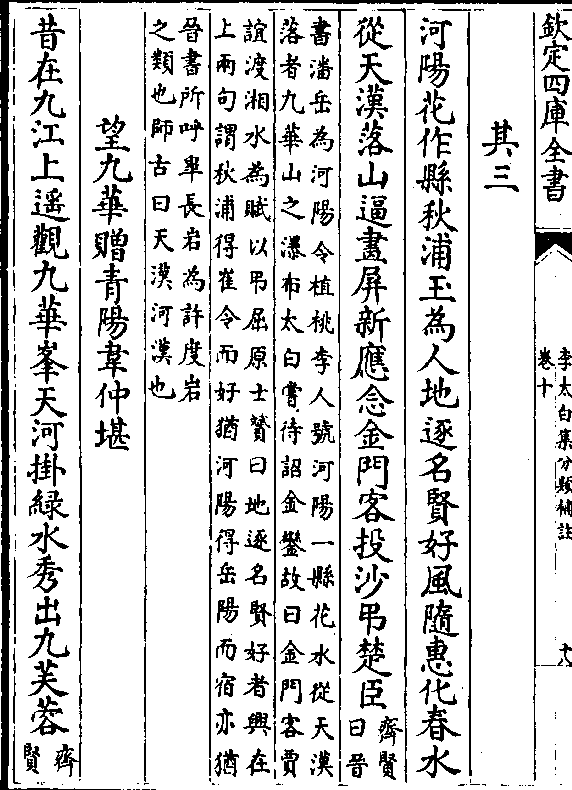 欽定四庫全書
李太白集分類補註
卷十
十八
其三
河陽花作縣秋浦玉為人地逐名賢好風隨惠化春水
從天漢落山逼畫屏新應念金門客投沙吊楚臣
齊賢
曰晉
書潘岳為河陽令植桃李人號河陽一縣花水從天漢
落者九華山之瀑布太白嘗待詔金鑾故曰金門客賈
誼渡湘水為賦以吊屈原士贇曰地逐名賢好者興在
上兩句謂秋浦得崔令而好猶河陽得岳陽而宿亦猶
晉書所呼長岩為許度岩
之類也師古曰天漢河漢也
望九華贈青陽韋仲堪
昔在九江上遥觀九華峯天河掛緑水秀出九芙蓉
齊
賢